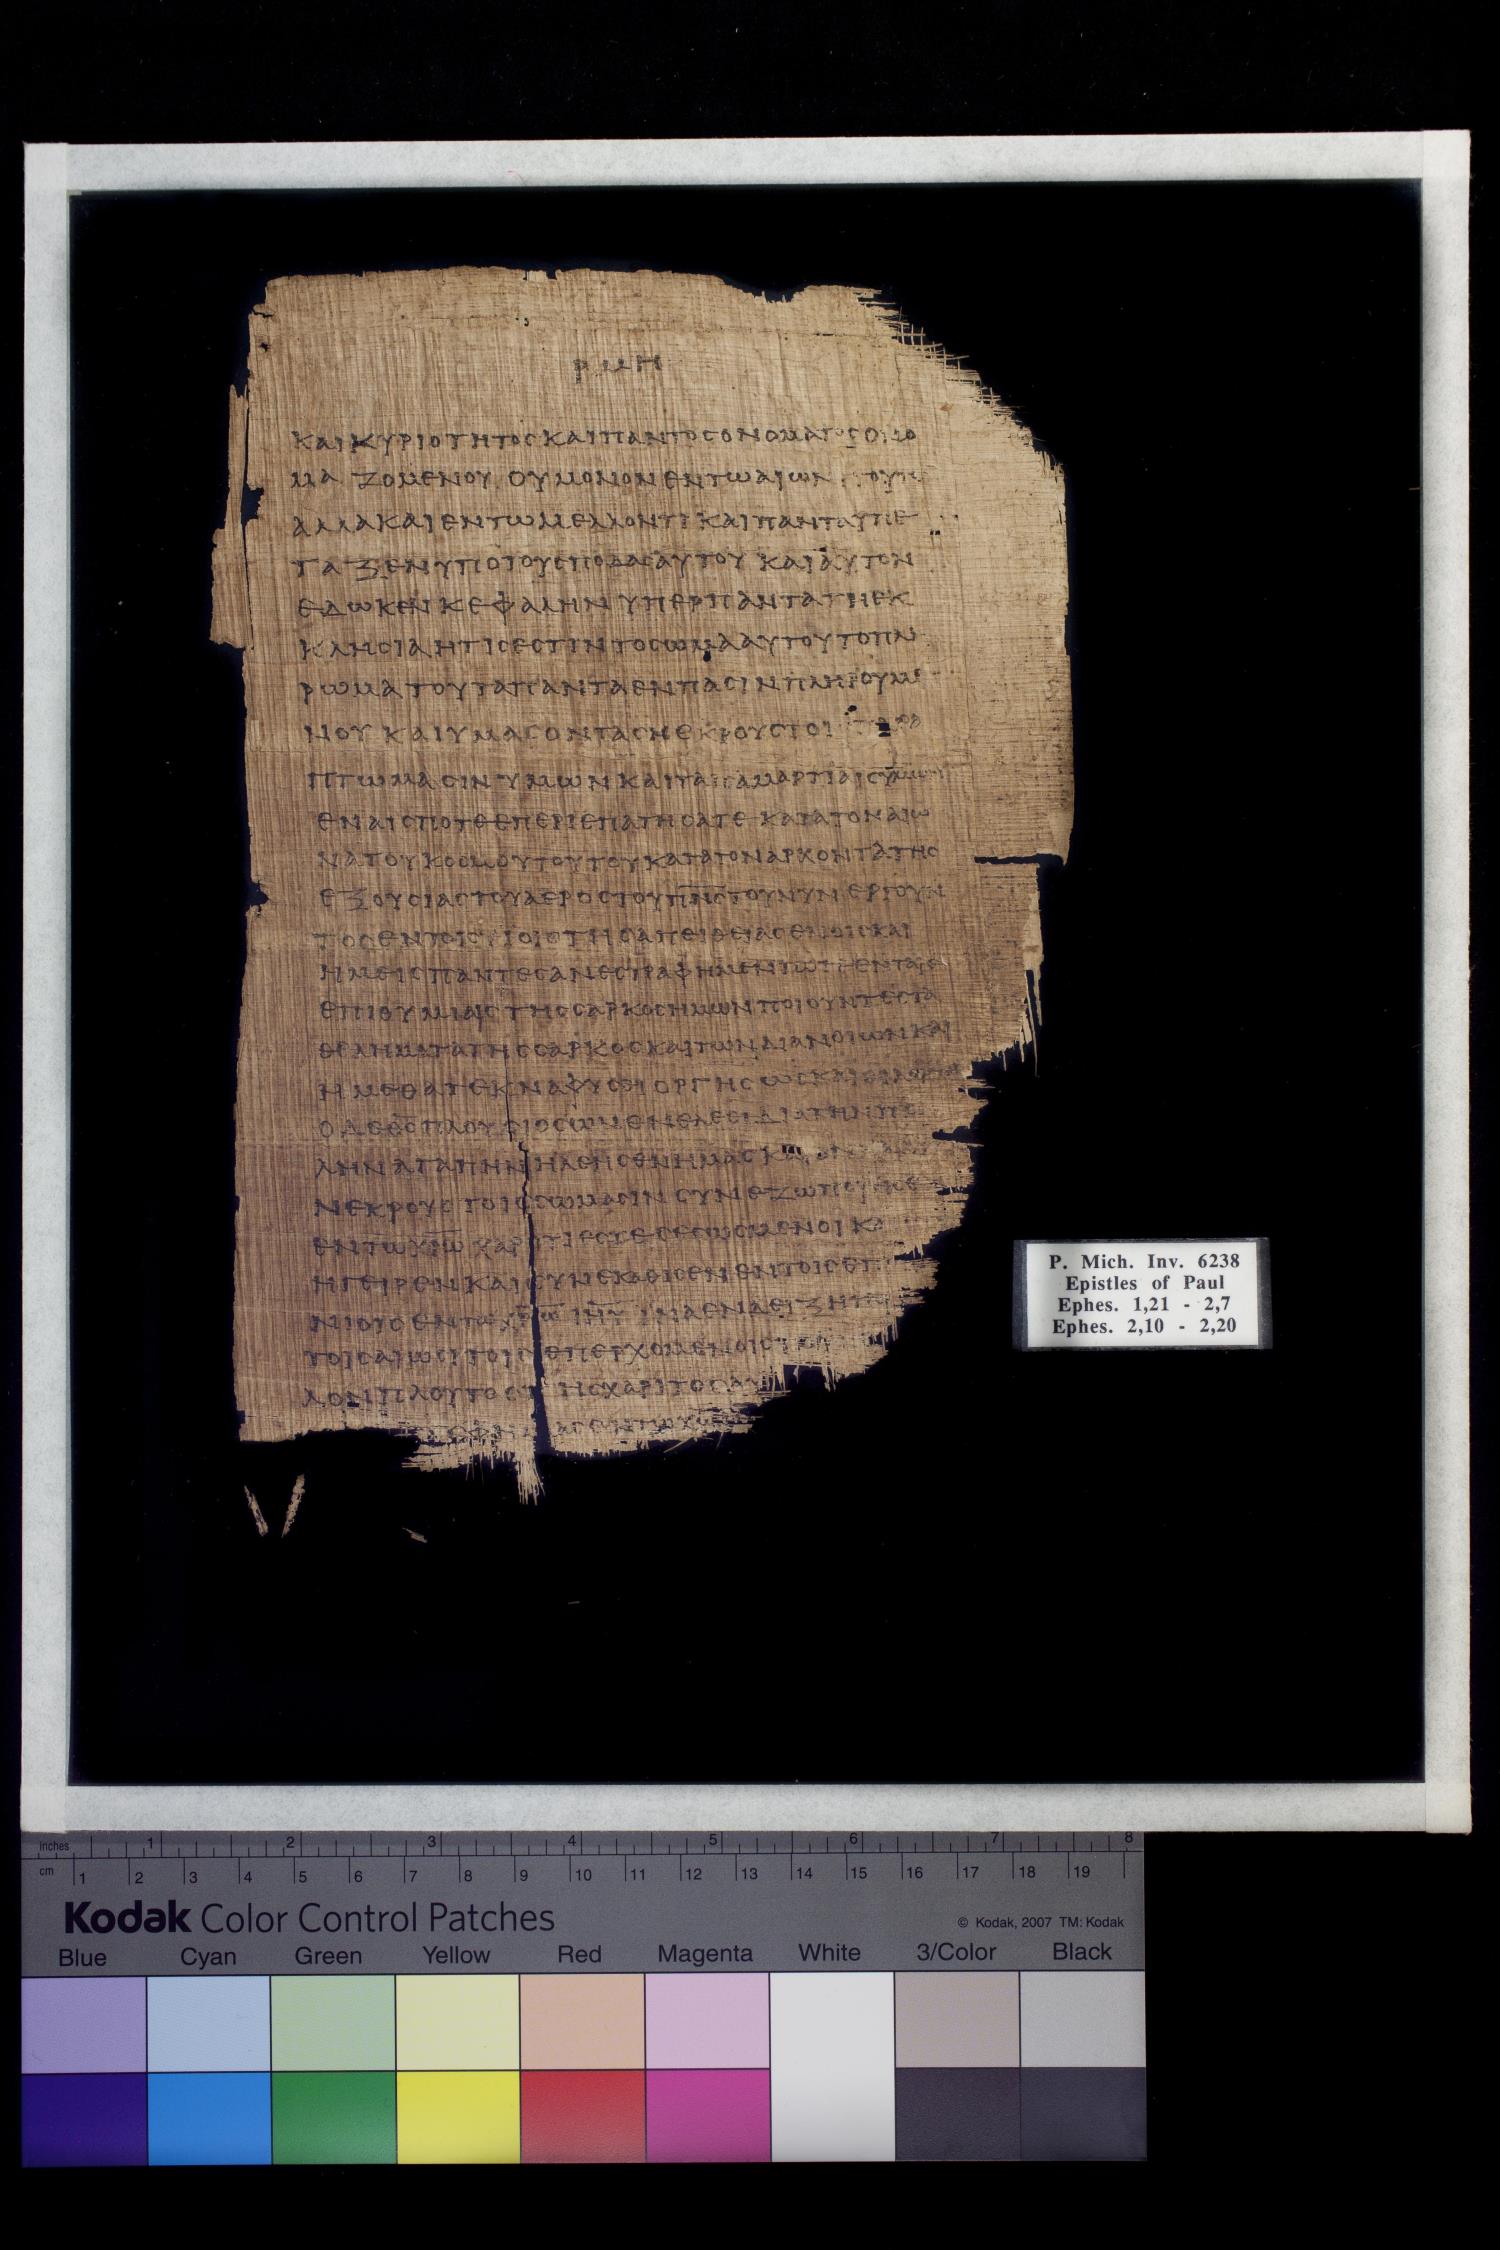 ΡΜΗ
ΚΑΙ ΚΥΡΙΟΤΗΤΟΣ ΚΑΙ ΠΑΝΤΟΣ ΟΝΟΜΑΤΟΣ ΟΝΟ
ΜΑΖΟΜΕΝΟΥ ΟΥ ΜΟΝΟΝ ΕΝ ΤΩ ΑΙΩΝ
ΑΛΛΑ ΚΑΙ ΕΝ ΤΩ ΜΕΛΛΟΝΤΙ ΚΑΙ ΠΑΝΤΑ ΥΠΕ
ΤΑΞΕΝ ΥΠΟ ΤΟΥΣ ΠΟΔΑΣ ΑΥΤΟΥ ΚΑΙ ΑΥΤΟΝ
ΕΔΩΚΕΝ ΚΕΦΑΛΗΝ ΥΠΕΡ ΠΑΝΤΑ ΤΗ ΕΚ
ΚΛΗΣΙΑ ΗΤΙΣ ΕΣΤΙΝ ΤΟ ΣΩΜΑ ΑΥΤΟΥ ΤΟ ΠΛ
ΡΩΜΑ ΤΟΥ ΤΑ ΠΑΝΤΑ ΕΝ ΠΑΣΙΝ ΠΛΗΡΟΥΜΕ
ΝΟΥ ΚΑΙ ΥΜΑΣ ΟΝΤΑΣ ΝΕΚΡΟΥΣ ΤΟΙ ΠΑΡΑ
ΠΤΩΜΑΣΙΝ ΥΜΩΝ ΚΑΙ ΤΑΙΣ ΑΜΑΡΤΙΑΙΣ ΥΜΩΝ
ΕΝ ΑΙΣ ΠΟΤΕ ΠΕΡΙΕΠΑΤΗΣΑΤΕ ΚΑΤΑ ΤΟΝ ΑΙΩ
ΝΑ ΤΟΥ ΚΟΣΜΟΥ ΤΟΥΤΟΥ ΚΑΤΑ ΤΟΝ ΑΡΧΟΝΤΑ ΤΗΣ
ΕΞΟΥΣΙΑΣ ΤΟΥ ΑΕΡΟΣ ΤΟΥ Π̅Ν̅Σ̅ ΤΟΥ ΝΥΝ ΕΡΓΟΥΝ
ΤΟΣ ΕΝ ΤΟΙΣ ΥΙΟΙΣ ΤΗΣ ΑΠΕΙΘΕΙΑΣ ΕΝ ΟΙΣ ΚΑΙ
ΗΜΕΙΣ ΠΑΝΤΕΣ ΑΝΕΣΤΡΑΦΗΜΕΝ ΠΟΤΕ ΕΝ ΤΑΙΣ
ΕΠΙΘΥΜΙΑΙΣ ΤΗΣ ΣΑΡΚΟΣ ΗΜΩΝ ΠΟΙΟΥΝΤΕΣ ΤΑ
ΘΕΛΗΜΑΤΑ ΤΗΣ ΣΑΡΚΟΣ ΚΑΙ ΤΩΝ ΔΙΑΝΟΙΩΝ ΚΑΙ
ΗΜΕΘΑ ΤΕΚΝΑ ΦΥΣΙ ΟΡΓΗΣ ΩΣ ΚΑΙ ΟΙ ΛΟΙΠΟΙ
Ο ΔΕ Θ̅Σ̅ ΠΛΟΥΣΙΟΣ ΩΝ ΕΝ ΕΛΕΕΙ ΔΙΑ ΤΗΝ ΠΟ
ΛΗΝ ΑΓΑΠΗΝ ΗΛΕΗΣΕΝ ΗΜΑΣ ΚΑΙ ΟΝ
ΝΕΚΡΟΥΣ ΤΟΙΣ ΣΩΜΑΣΙΝ ΣΥΝΕΖΩΠΟΙΗΣΕ
ΕΝ ΤΩ Χ̅Ρ̅Ω̅ ΧΑΡΙΤΙ ΕΣΤΕ ΣΕΣΩΣΜΕΝΟΙ ΚΑ
ΗΓΕΙΡΕΝ ΚΑΙ ΣΥΝΕΚΑΘΙΣΕΝ ΕΝ ΤΟΙΣ ΕΠ
ΝΙΟΙΣ ΕΝ Τ Χ̅Ρ̅Ω̅ Ι̅Η̅Υ̅ ΙΝΑ ΕΝΔΕΙΞΗΤ
ΤΟΙΣ ΑΙΩΣΙ ΤΟΙΣ ΕΠΕΡΧΟΜΕΝΟΙΣ
ΛΟΝ ΠΛΟΥΤΟΣ ΤΗΣ ΧΑΡΙΤΟΣ ΑΥ
ΕΦ ΗΜΑΣ ΕΝ ΤΩ Χ̅Ρ̅Ω̅
P. Mich. Inv. 6238
Epistles of Paul
Ephes. 1,21 - 2,7
Ephes. 2,10 - 2,20
inches 1 2 3 4 5 6 7 8
cm 1 2 3 4 5 6 7 8 9 10 11 12 13 14 15 16 17 18 19
Kodak Color Control Patches © Kodak, 2007 TM: Kodak
Blue Cyan Green Yellow Red Magenta White 3/Color Black